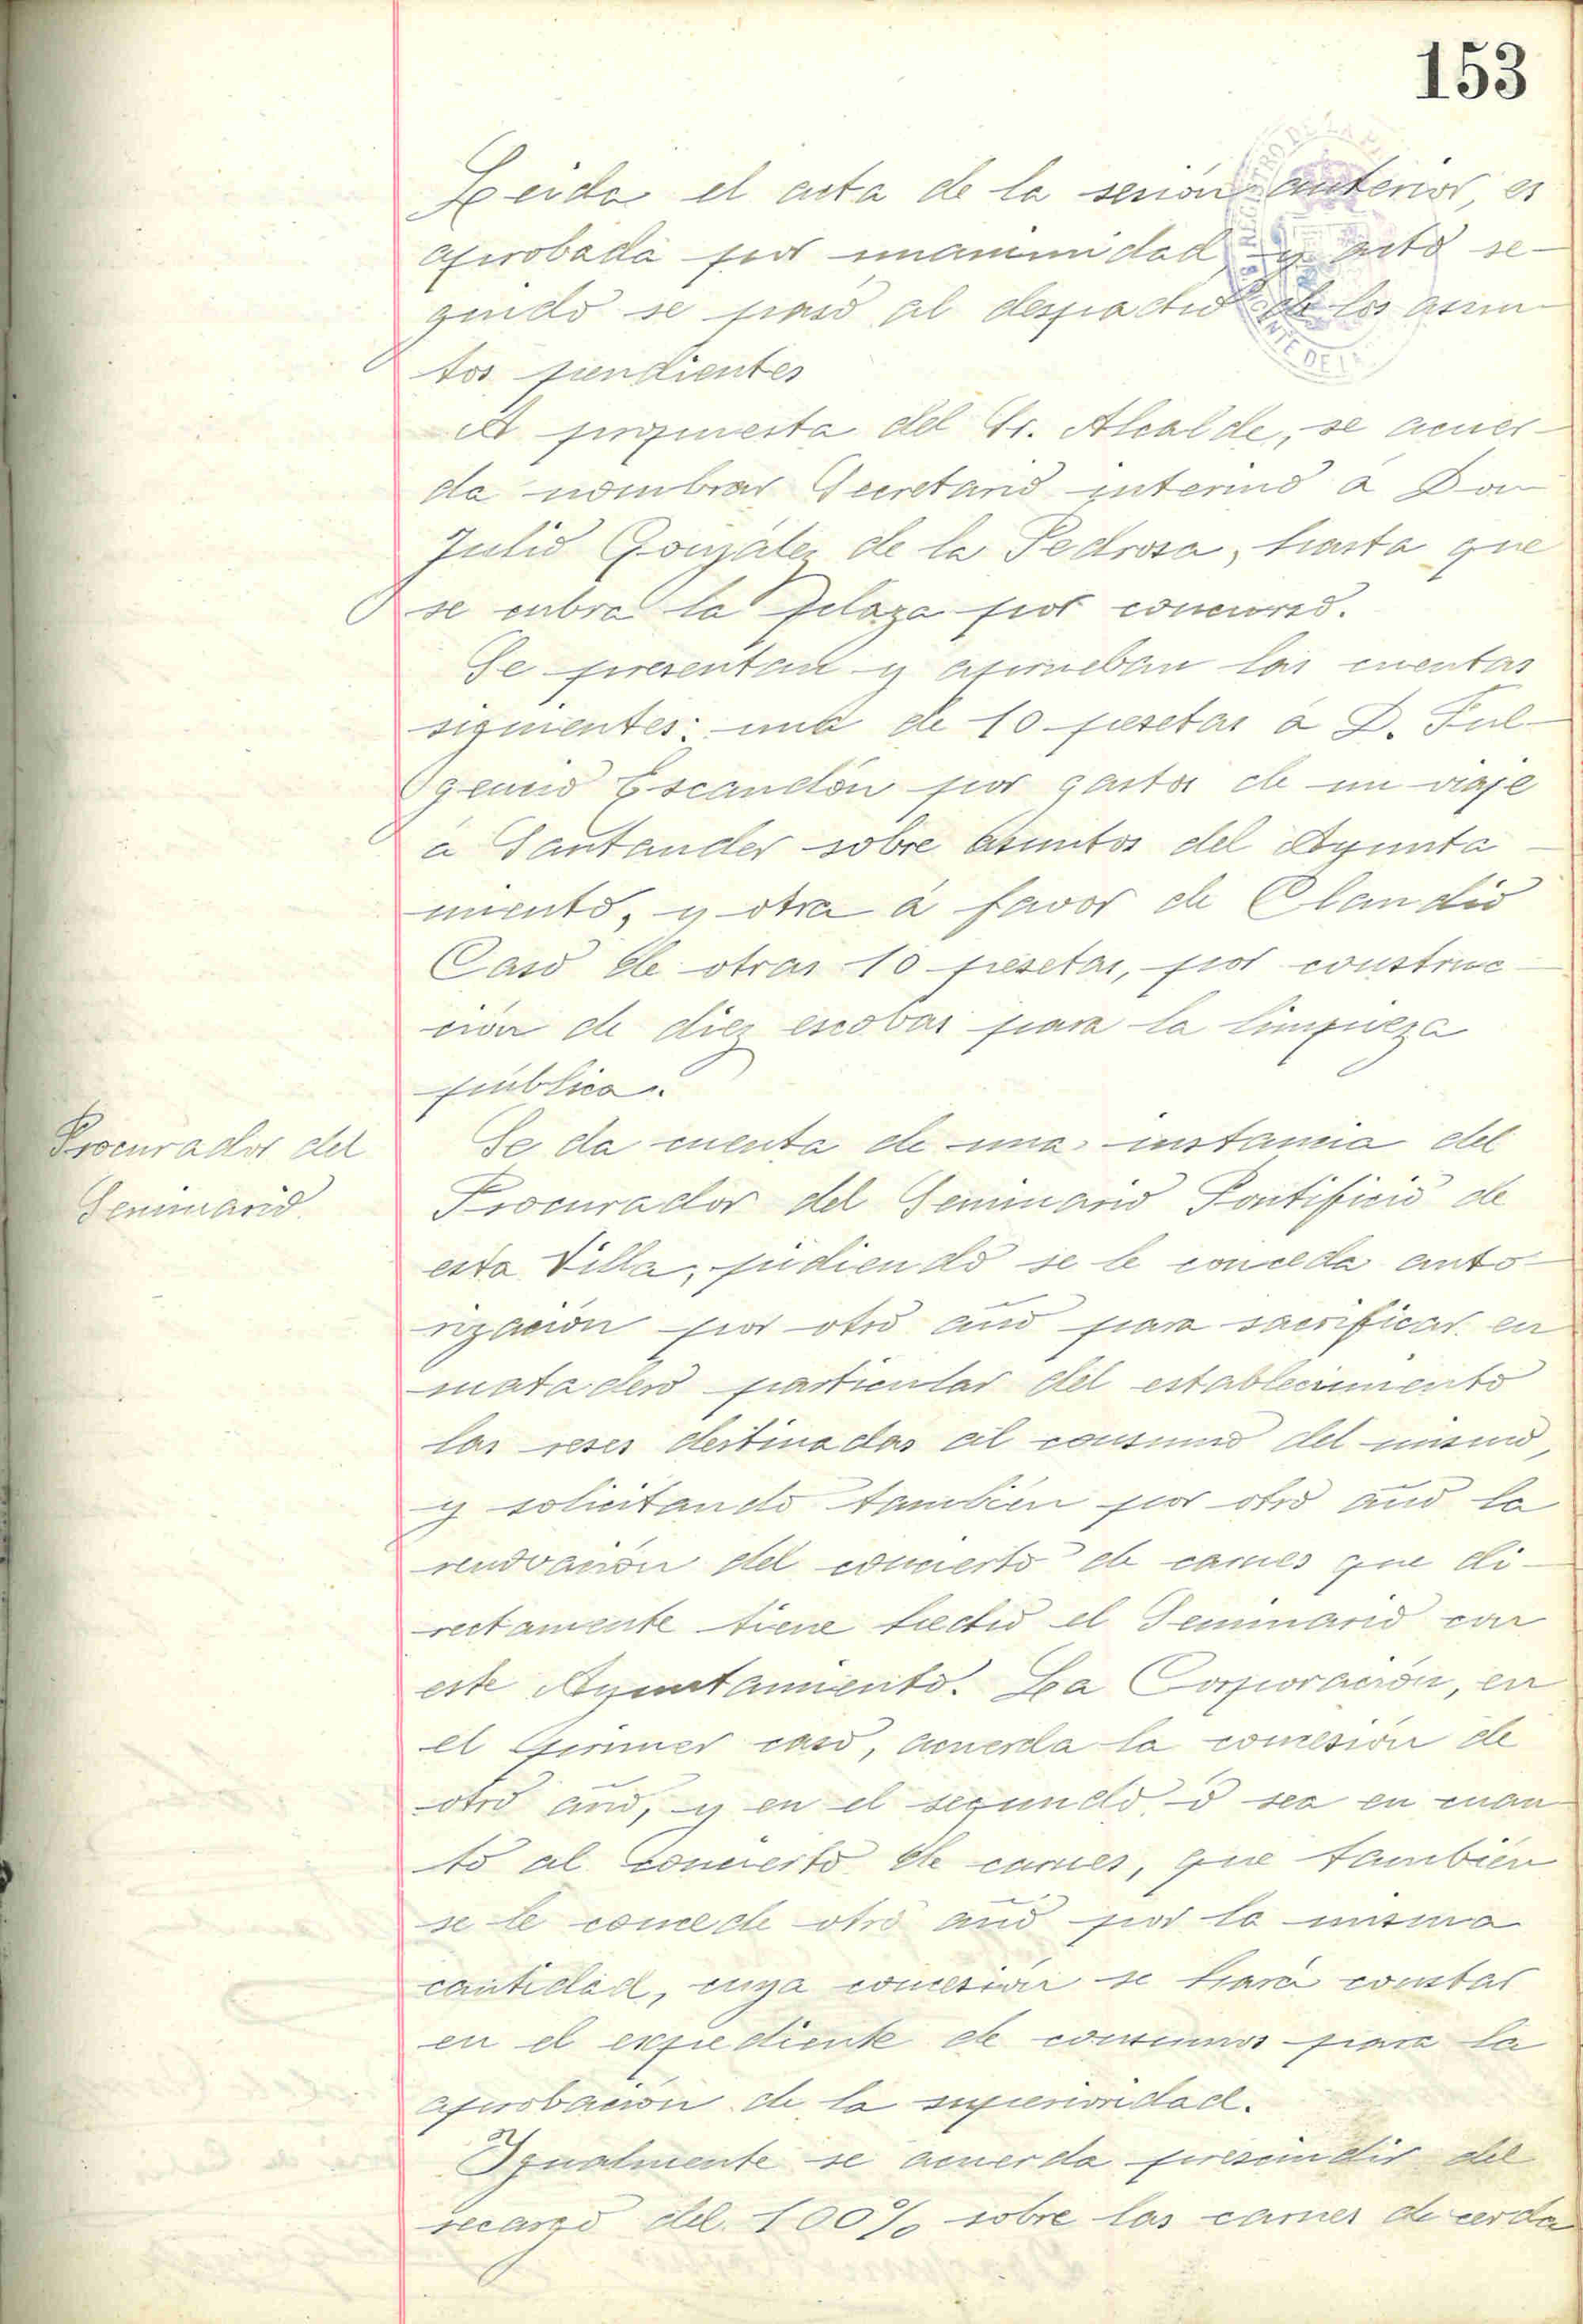 153
Leida el acta de la sesión anterior, es
aprobada por unanimidad, y acto se-
guido se pasó al despacho de los asun-
tos pendientes
A propuesta del Sr. Alcalde, se acuer-
da nombrar Secretario interino á Don
Julio González de la Pedrosa, hasta que
se cubra la plaza por concurso.
Se presentan y aprueban las cuentas
siguientes: una de 10 pesetas á D. Ful-
gencio Escandón por gastos de un viaje
á Santander sobre asuntos del Ayunta-
miento, y otra á favor de Claudio
Caso de otras 10 pesetas, por construc-
ción de diez escobas para la limpieza
pública.
Procurador del
Seminario.
Se da cuenta de una instancia del
Procurador del Seminario Pontificio de
esta Villa, pidiendo se le conceda auto-
rización por otro año para sacrificar en
matadero particular del establecimiento
las reses destinadas al consumo del mismo,
y solicitando también por otro año la
renovación del concierto de carnes que di-
rectamente tiene hecho el Seminario con
este Ayuntamiento. La Corporación, en
el primer caso, acuerda la concesión de
otro año, y en el segundo ó sea en cuan-
to al concierto de carnes, que también
se le concede otro año por la misma
cantidad, cuya concesión se hará constar
en el expediente de consumos para la
aprobación de la superioridad.
Igualmente se acuerda prescindir del
recargo del 100% sobre las carnes de cerda